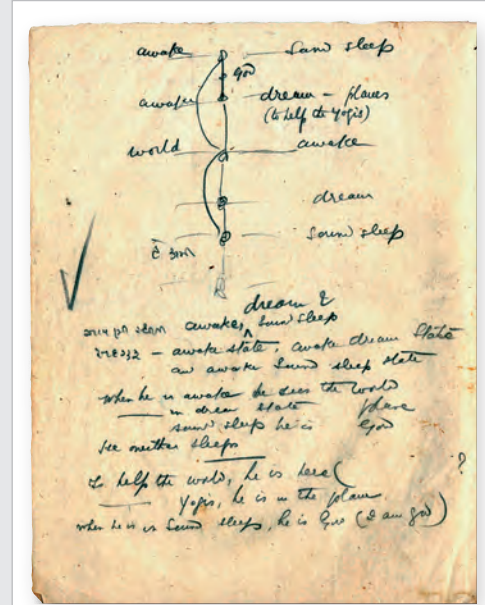 awake Sound sleep
god
awake dream - planes
(to help the yogis)
world awake
dream
Sound sleep
dream &
awake, sound sleep
awake state, awake dream state
an awake sound sleep state
when he is awake he sees the world
in dream state plane
sound sleep he is God
he neither sleeps
To help the world, he is here (
Yogis, he is in the plane
?
when he is in sound sleep, he is God (I am god)